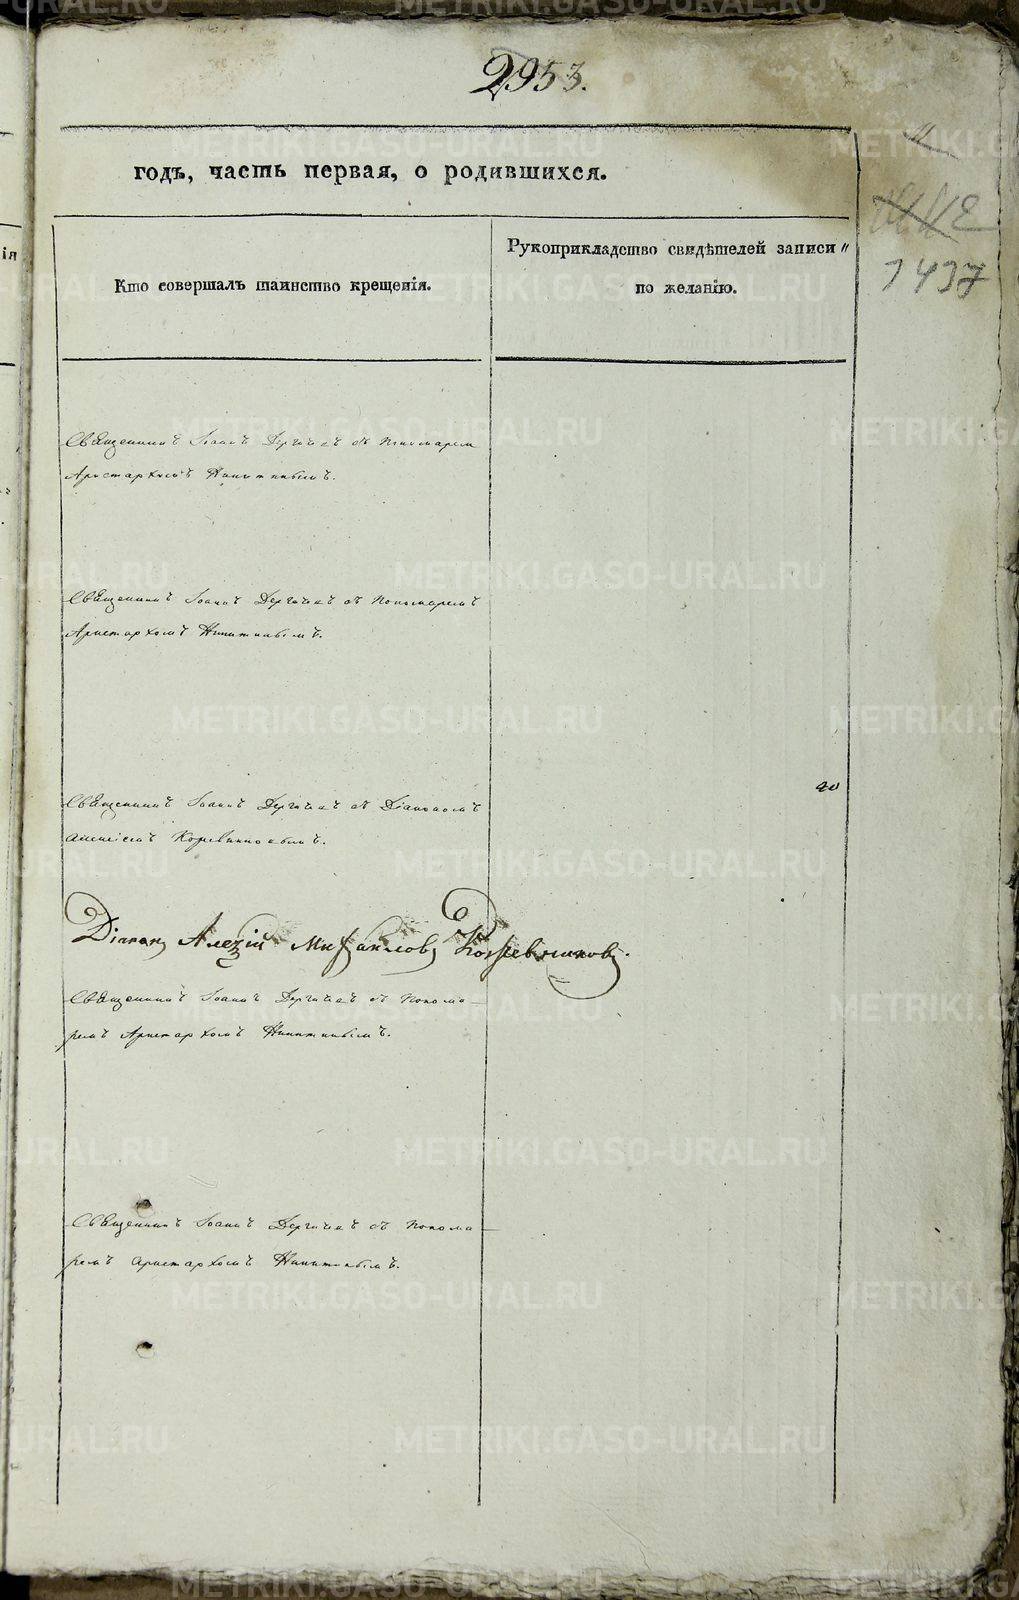 2953.
годъ, часть первая, о родившихся.
Кто совершалъ таинство крещенія.
Рукоприкладство свидѣтелей записи
по желанію.
1437
Священникъ Іоаннъ Дергачевъ съ Пономаремъ
Аристархомъ Никитинымъ.
Священникъ Іоаннъ Дергачевъ съ Пономаремъ
Аристархомъ Никитинымъ.
Священникъ Іоаннъ Дергачевъ съ Діакономъ
Алексіемъ Кожевниковымъ.
Діаконъ Алезій Михаиловъ Кожевниковъ.
Священникъ Іоаннъ Дергачевъ съ Понома-
ремъ Аристархомъ Никитинымъ.
Священникъ Іоаннъ Дергачевъ съ Понома-
ремъ Аристархомъ Никитинымъ.
METRIKI.GASO-URAL.RU